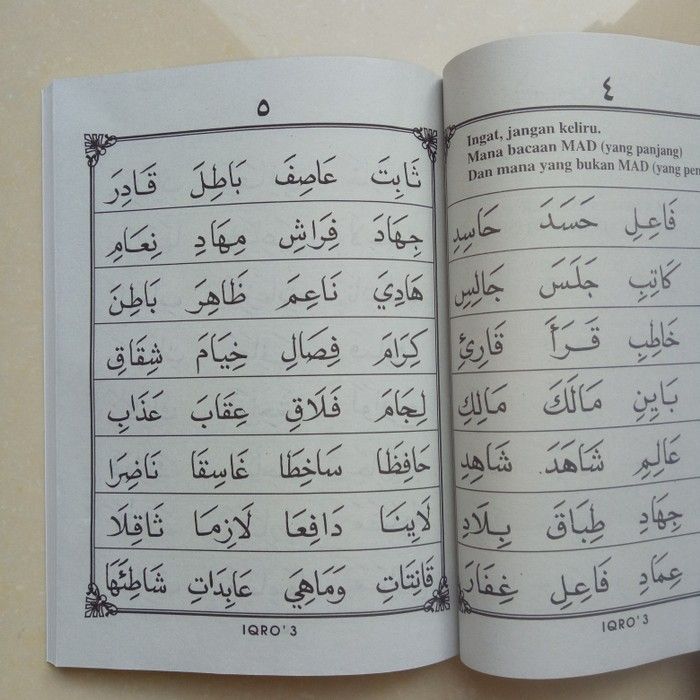 ٤
Ingat, jangan keliru.
Mana bacaan MAD (yang panjang)
Dan mana yang bukan MAD (yang pen
فَاعِلِ حَسَدَ حَاسِدِ
كَاتِبِ جَلَسَ جَالِسِ
خَاطِبِ قَرَأَ قَارِئِ
بَايِنِ مَالَكَ مَالِكِ
عَالِمِ شَاهَدَ شَاهِدِ
جِهَادِ طِبَاقَ بِلَادِ
عِمَادِ فَاعِلِ غِفَارَ
IQRO' 3
٥
ثَابِتَ عَاصِفَ بَاطِلَ قَادِرَ
جِهَادَ فِرَاشِ مِهَادِ نِعَامِ
هَادِيَ نَاعِمَ ظَاهِرَ بَاطِنَ
كِرَامَ فِصَالِ خِيَامَ شِقَاقِ
لِجَامَ فَلَاقِ عِقَابَ عَذَابِ
حَافِظَا سَاخِطَا غَاسِقَا نَاضِرَا
لَايِنَا دَافِعَا لَازِمَا ثَاقِلَا
قَانِتَاتِ وَمَاهِيَ عَابِدَاتِ شَاطِئَهَا
IQRO' 3